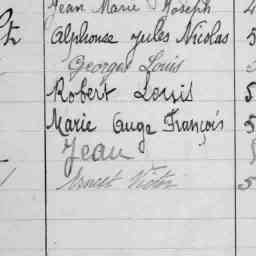 Jean Marie Joseph 4
Alphonse Jules Nicolas 5
Georges Louis
Robert Louis 5
Marie Ange François 5
Jean
Ernest Victor 5